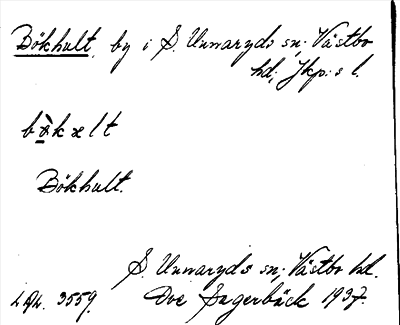 Bökhult, by i S. Unnaryds sn; Västbo
hd; Jkp:s l.
bø̀kælt
Bökhult.
S. Unnaryds sn; Västbo hd.
3559. Ove Lagerbäck 1937.